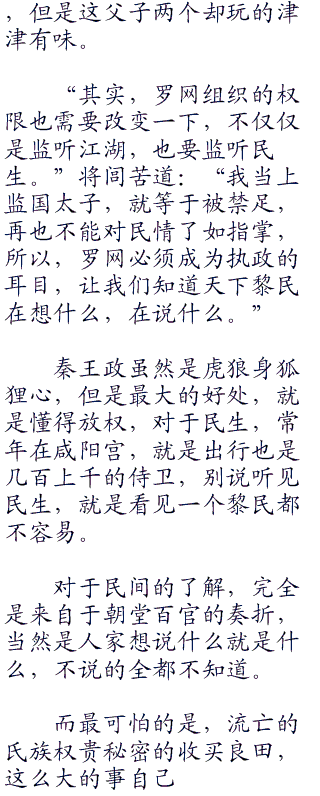 ，但是这父子两个却玩的津
津有味。
“其实，罗网组织的权
限也需要改变一下，不仅仅
是监听江湖，也要监听民
生。”将闾苦道：“我当上
监国太子，就等于被禁足，
再也不能对民情了如指掌，
所以，罗网必须成为执政的
耳目，让我们知道天下黎民
在想什么，在说什么。”
秦王政虽然是虎狼身狐
狸心，但是最大的好处，就
是懂得放权，对于民生，常
年在咸阳宫，就是出行也是
几百上千的侍卫，别说听见
民生，就是看见一个黎民都
不容易。
对于民间的了解，完全
是来自于朝堂百官的奏折，
当然是人家想说什么就是什
么，不说的全都不知道。
而最可怕的是，流亡的
氏族权贵秘密的收买良田，
这么大的事自己